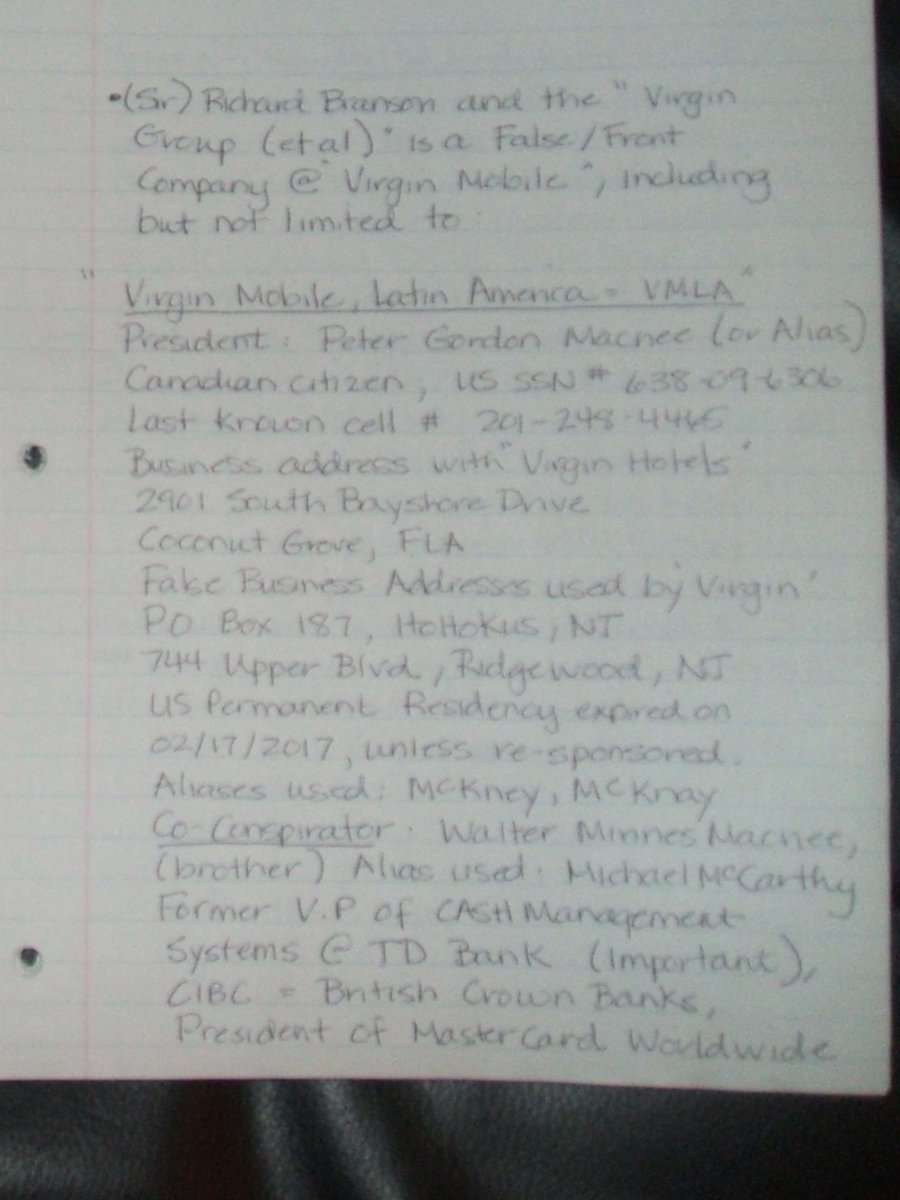 •(Sir) Richard Branson and the " Virgin
Group (et al)" is a False/Front
Company @ "Virgin Mobile", including
but not limited to :
"Virgin Mobile, Latin America = VMLA"
President : Peter Gordon Macnee (or Alias)
Canadian citizen, US SSN # [redacted]
Last known cell # [redacted]
Business address with "Virgin Hotels"
2901 South Bayshore Drive
Coconut Grove, FLA
False Business Addresses used by Virgin'
PO Box 187, HoHokus, NJ
744 Upper Blvd, Ridgewood, NJ
US Permanent Residency expired on
02/17/2017, unless re-sponsored.
Aliases used : McKney, McKnay
Co-Conspirator : Walter Minnes Macnee,
(brother) Alias used : Michael McCarthy
Former V.P of CASH Management
Systems @ TD Bank (Important),
CIBC = British Crown Banks,
President of MasterCard Worldwide